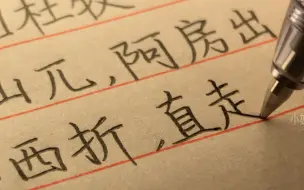 山兀,阿房出
西折,直走